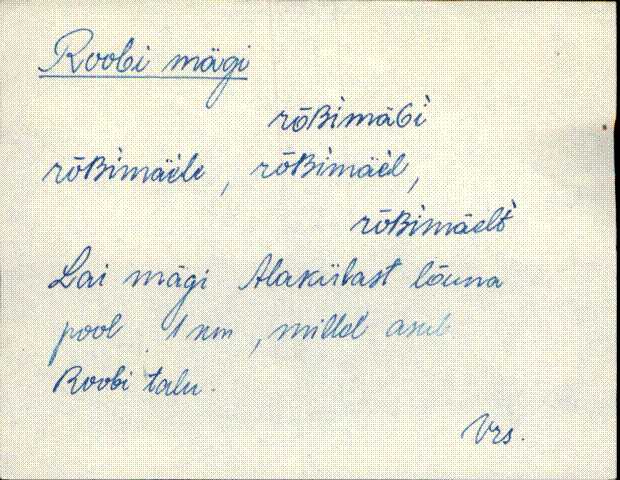 Roobi mägi
rōʙimäɢi
rōʙimäèle, rōʙimäèl,
rōʙimäèl̀t
Lai mägi Alakülast lõuna
pool 1 km, millel asub
Roobi talu.
Vrs.